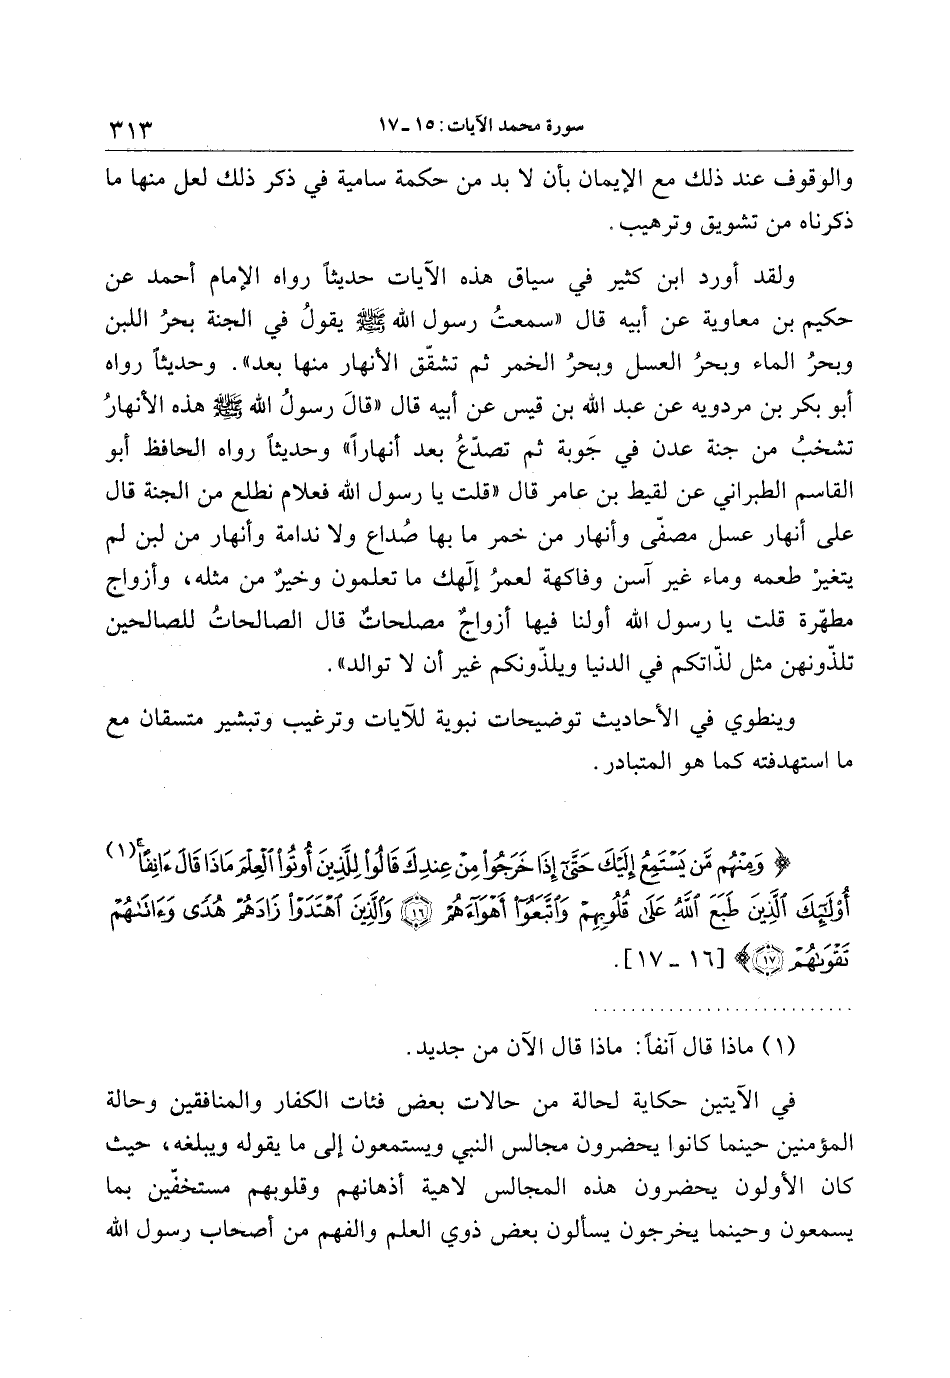 سورة محمد الآيات: ١٥ ـ ١٧
٣١٣
والوقوف عند ذلك مع الإيمان بأن لا بد من حكمة سامية في ذكر ذلك لعل منها ما
ذكرناه من تشويق وترهيب.
ولقد أورد ابن كثير في سياق هذه الآيات حديثاً رواه الإمام أحمد عن
حكيم بن معاوية عن أبيه قال «سمعتُ رسول الله ﷺ يقولُ في الجنة بحرُ اللبن
وبحرُ الماء وبحرُ العسل وبحرُ الخمر ثم تشقّق الأنهار منها بعد». وحديثاً رواه
أبو بكر بن مردويه عن عبد الله بن قيس عن أبيه قال «قالَ رسولُ الله ﷺ هذه الأنهارُ
تشخبُ من جنة عدن في جَوبة ثم تصدّعُ بعد أنهاراً» وحديثاً رواه الحافظ أبو
القاسم الطبراني عن لقيط بن عامر قال «قلت يا رسول الله فعلام نطلع من الجنة قال
على أنهار عسل مصفّى وأنهار من خمر ما بها صُداع ولا ندامة وأنهار من لبن لم
يتغيرْ طعمه وماء غير آسن وفاكهة لعمرُ إلَهك ما تعلمون وخيرٌ من مثله، وأزواج
مطهّرة قلت يا رسول الله أولنا فيها أزواجٌ مصلحاتٌ قال الصالحاتُ للصالحين
تلذّونهن مثل لذّاتكم في الدنيا ويلذّونكم غير أن لا توالد».
وينطوي في الأحاديث توضيحات نبوية للآيات وترغيب وتبشير متسقان مع
ما استهدفته كما هو المتبادر.
﴿ وَمِنْهُم مَّن يَسْتَمِعُ إِلَيْكَ حَتَّىٰٓ إِذَا خَرَجُواْ مِنْ عِندِكَ قَالُواْ لِلَّذِينَ أُوتُواْ ٱلْعِلْمَ مَاذَا قَالَ ءَانِفًاۚ (١)
أُوْلَٰٓئِكَ ٱلَّذِينَ طَبَعَ ٱللَّهُ عَلَىٰ قُلُوبِهِمْ وَٱتَّبَعُوٓاْ أَهْوَآءَهُمْ ۝١٦ وَٱلَّذِينَ ٱهْتَدَوْاْ زَادَهُمْ هُدًى وَءَاتَىٰهُمْ
تَقْوَىٰهُمْ ۝١٧﴾ [١٦ ـ ١٧].
(١) ماذا قال آنفاً: ماذا قال الآن من جديد.
في الآيتين حكاية لحالة من حالات بعض فئات الكفار والمنافقين وحالة
المؤمنين حينما كانوا يحضرون مجالس النبي ويستمعون إلى ما يقوله ويبلغه، حيث
كان الأولون يحضرون هذه المجالس لاهية أذهانهم وقلوبهم مستخفّين بما
يسمعون وحينما يخرجون يسألون بعض ذوي العلم والفهم من أصحاب رسول الله